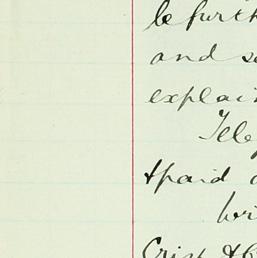 be furth
and se
explai
Tele
&paid
wri
Crisp &